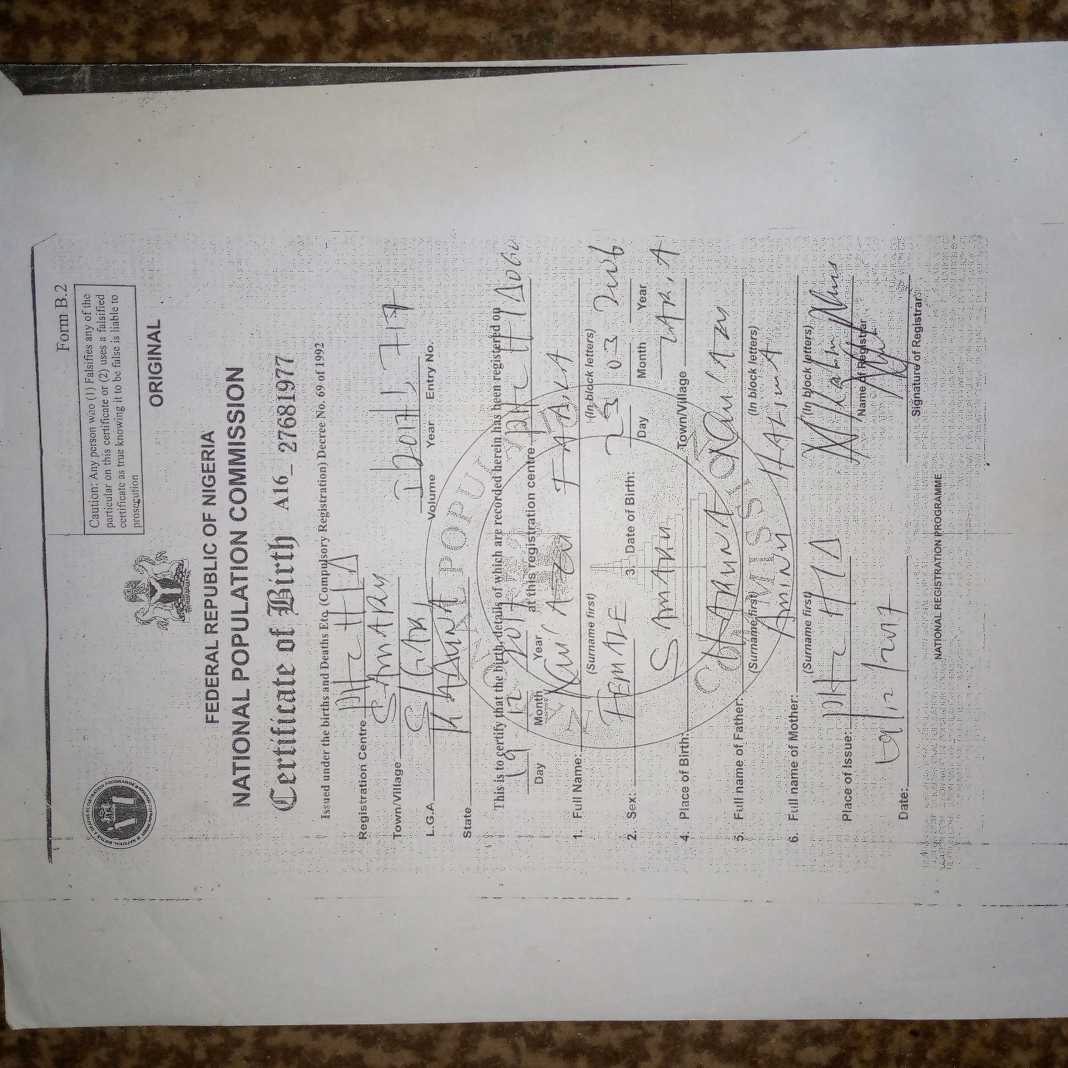 Form B.2
Caution: Any person who (1) Falsifies any of the
particular on this certificate or (2) uses a falsified
certificate as true knowing it to be false is liable to
prosecution
ORIGINAL
FEDERAL REPUBLIC OF NIGERIA
NATIONAL POPULATION COMMISSION
Certificate of Birth A16_ 27681977
Issued under the births and Deaths Etc (Compulsory Registration) Decree No. 69 of 1992
Registration Centre PHC H
Town/Village SAMARU
L.G.A S/GARI
State KADUNA
Volume Year Entry No.
717
This is to certify that the birth details of which are recorded herein has been registered on
12 2017 at this registration centre PHC H
Day Month Year
1. Full Name:
(Surname first) (In block letters)
2. Sex: FEMALE 3. Date of Birth: 23 03 2006
Day Month Year
4. Place of Birth: SAMARU ZARIA
Town/Village
5. Full name of Father: HARUNA
(Surname first) (In block letters)
6. Full name of Mother: AMINU HALIMA
(Surname first) (In block letters)
Place of Issue: PHC H
Name of Registrar
Date: 2017
Signature of Registrar
NATIONAL REGISTRATION PROGRAMME